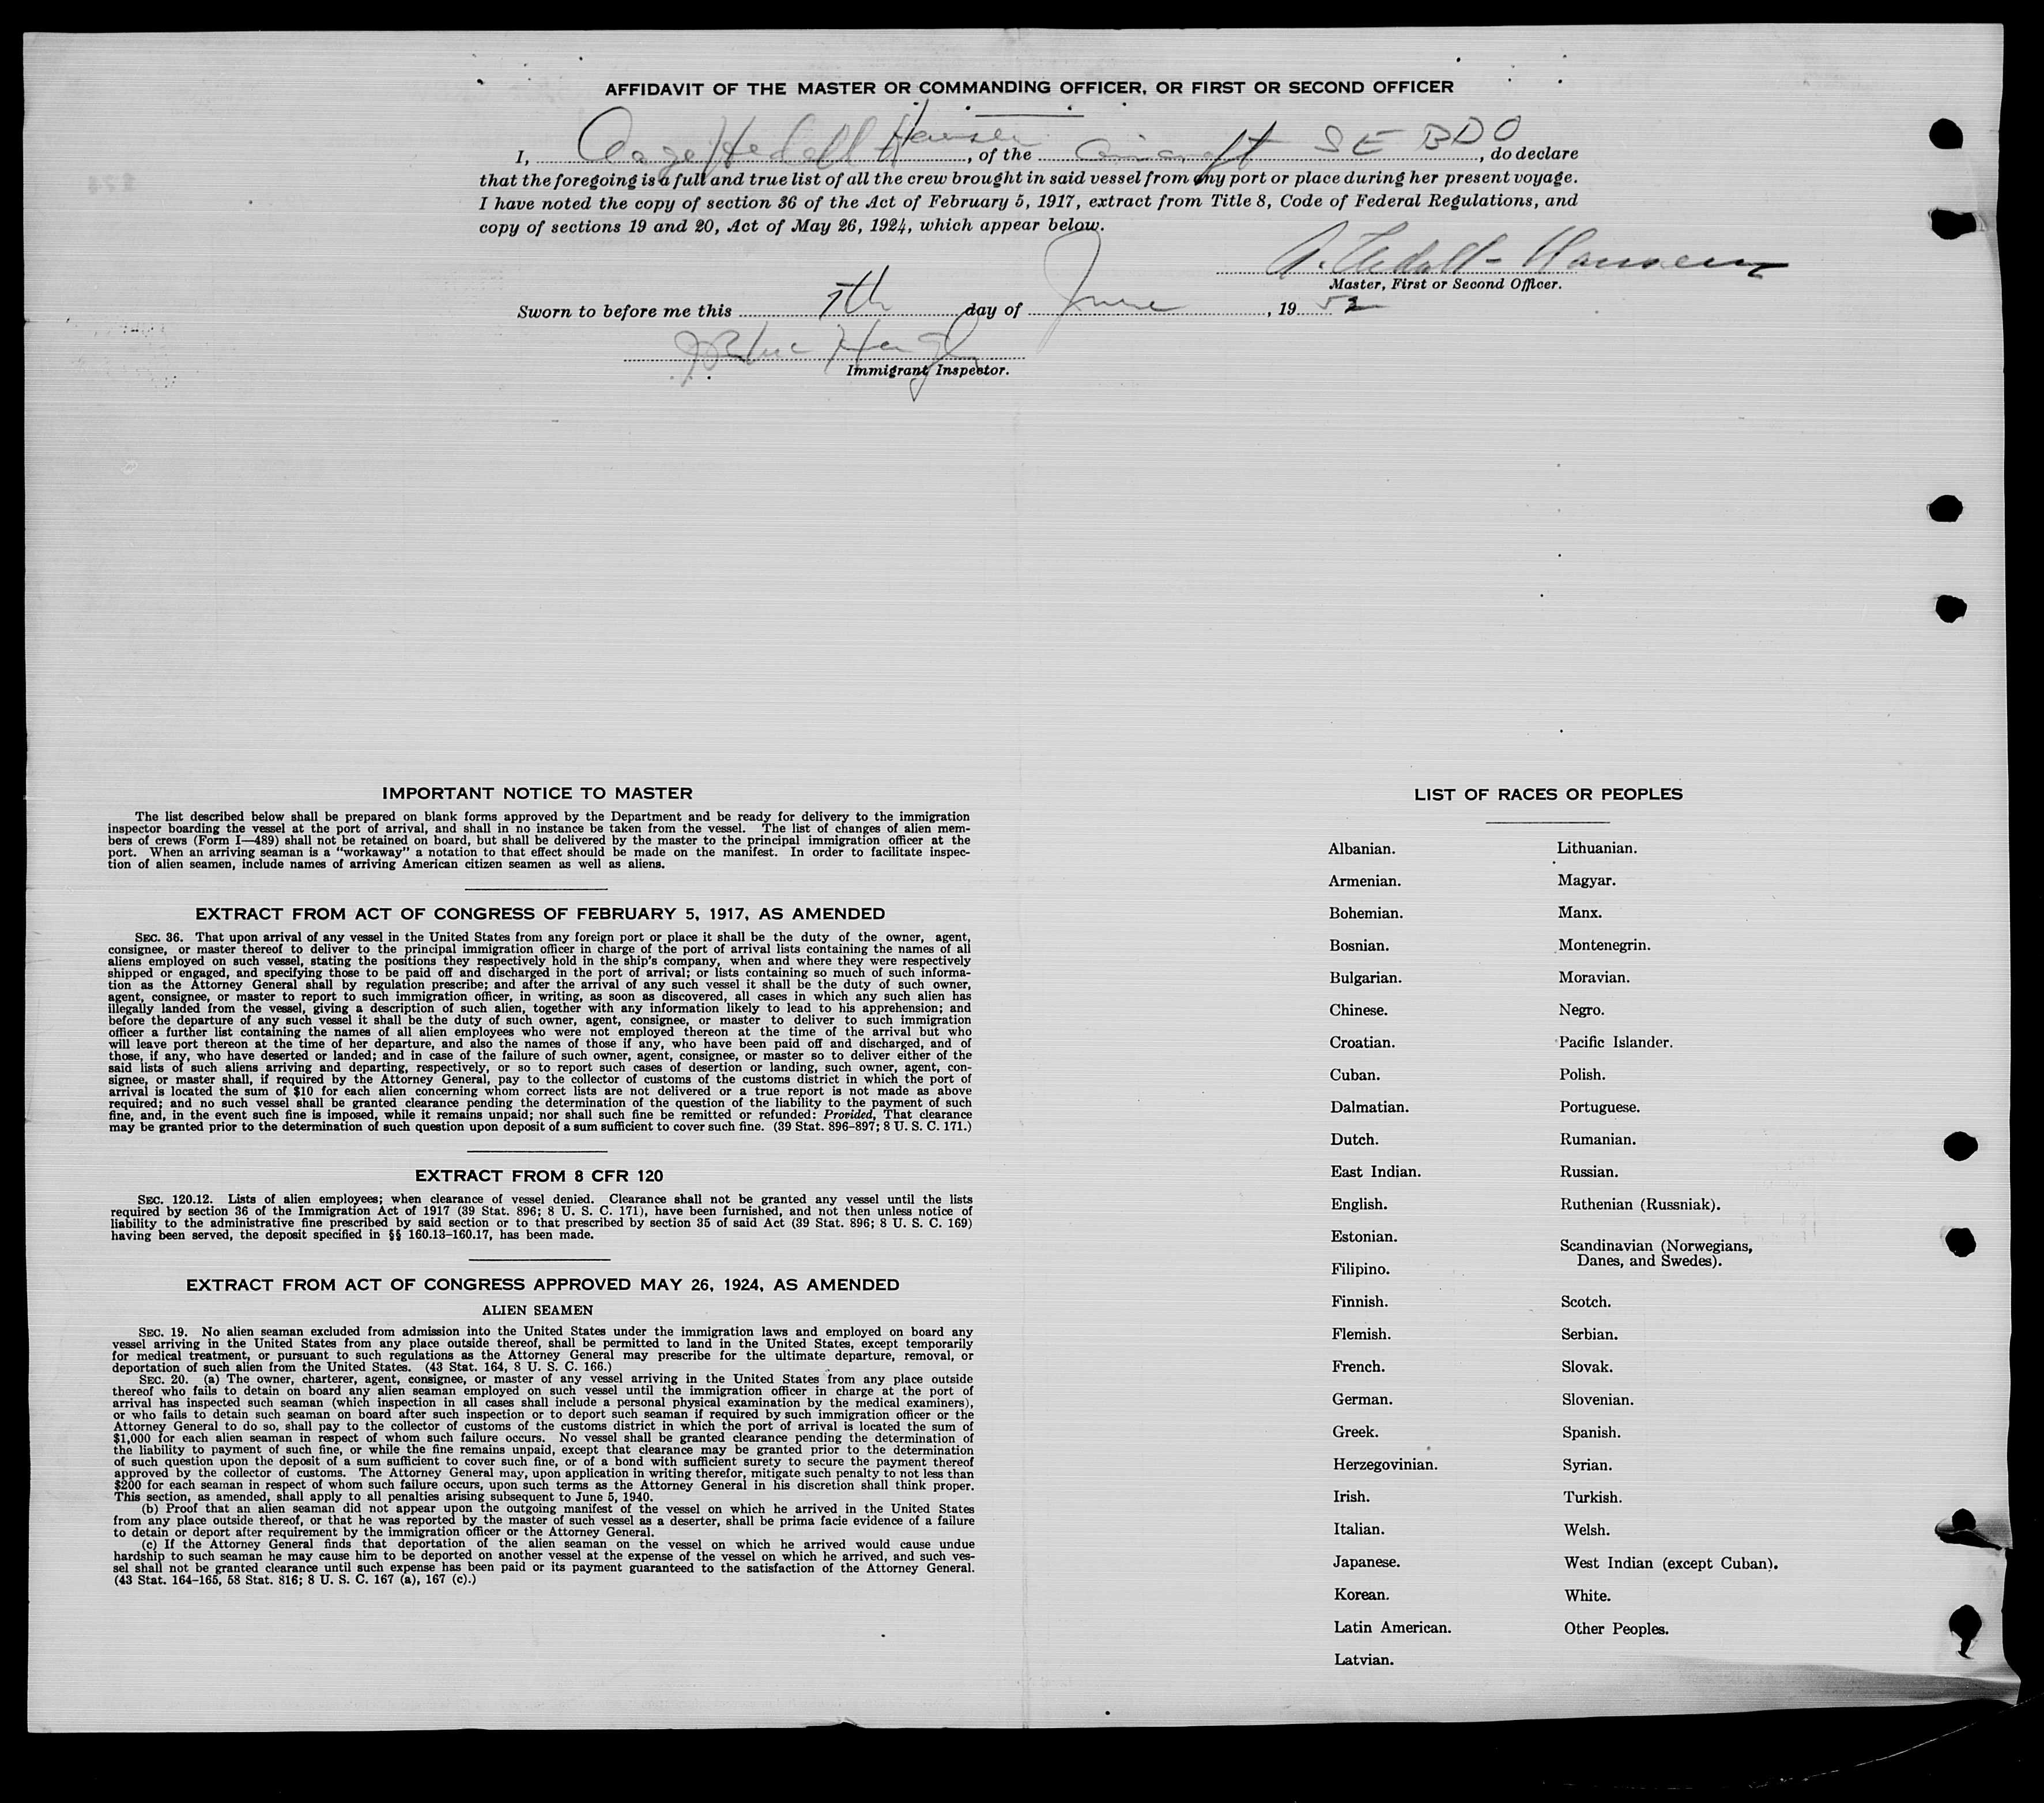 AFFIDAVIT OF THE MASTER OR COMMANDING OFFICER, OR FIRST OR SECOND OFFICER
I, Aage Hedall Hansen, of the aircraft SE BDO, do declare
that the foregoing is a full and true list of all the crew brought in said vessel from any port or place during her present voyage.
I have noted the copy of section 36 of the Act of February 5, 1917, extract from Title 8, Code of Federal Regulations, and
copy of sections 19 and 20, Act of May 26, 1924, which appear below.
A. Hedall-Hansen
Master, First or Second Officer.
Sworn to before me this 7th day of June, 1952
Immigrant Inspector.
IMPORTANT NOTICE TO MASTER
The list described below shall be prepared on blank forms approved by the Department and be ready for delivery to the immigration
inspector boarding the vessel at the port of arrival, and shall in no instance be taken from the vessel. The list of changes of alien mem-
bers of crews (Form I—489) shall not be retained on board, but shall be delivered by the master to the principal immigration officer at the
port. When an arriving seaman is a "workaway" a notation to that effect should be made on the manifest. In order to facilitate inspec-
tion of alien seamen, include names of arriving American citizen seamen as well as aliens.
EXTRACT FROM ACT OF CONGRESS OF FEBRUARY 5, 1917, AS AMENDED
SEC. 36. That upon arrival of any vessel in the United States from any foreign port or place it shall be the duty of the owner, agent,
consignee, or master thereof to deliver to the principal immigration officer in charge of the port of arrival lists containing the names of all
aliens employed on such vessel, stating the positions they respectively hold in the ship's company, when and where they were respectively
shipped or engaged, and specifying those to be paid off and discharged in the port of arrival; or lists containing so much of such informa-
tion as the Attorney General shall by regulation prescribe; and after the arrival of any such vessel it shall be the duty of such owner,
agent, consignee, or master to report to such immigration officer, in writing, as soon as discovered, all cases in which any such alien has
illegally landed from the vessel, giving a description of such alien, together with any information likely to lead to his apprehension; and
before the departure of any such vessel it shall be the duty of such owner, agent, consignee, or master to deliver to such immigration
officer a further list containing the names of all alien employees who were not employed thereon at the time of the arrival but who
will leave port thereon at the time of her departure, and also the names of those if any, who have been paid off and discharged, and of
those, if any, who have deserted or landed; and in case of the failure of such owner, agent, consignee, or master so to deliver either of the
said lists of such aliens arriving and departing, respectively, or so to report such cases of desertion or landing, such owner, agent, con-
signee, or master shall, if required by the Attorney General, pay to the collector of customs of the customs district in which the port of
arrival is located the sum of $10 for each alien concerning whom correct lists are not delivered or a true report is not made as above
required; and no such vessel shall be granted clearance pending the determination of the question of the liability to the payment of such
fine, and, in the event such fine is imposed, while it remains unpaid; nor shall such fine be remitted or refunded: Provided, That clearance
may be granted prior to the determination of such question upon deposit of a sum sufficient to cover such fine. (39 Stat. 896–897; 8 U. S. C. 171.)
EXTRACT FROM 8 CFR 120
SEC. 120.12. Lists of alien employees; when clearance of vessel denied. Clearance shall not be granted any vessel until the lists
required by section 36 of the Immigration Act of 1917 (39 Stat. 896; 8 U. S. C. 171), have been furnished, and not then unless notice of
liability to the administrative fine prescribed by said section or to that prescribed by section 35 of said Act (39 Stat. 896; 8 U. S. C. 169)
having been served, the deposit specified in §§ 160.13–160.17, has been made.
EXTRACT FROM ACT OF CONGRESS APPROVED MAY 26, 1924, AS AMENDED
ALIEN SEAMEN
SEC. 19. No alien seaman excluded from admission into the United States under the immigration laws and employed on board any
vessel arriving in the United States from any place outside thereof, shall be permitted to land in the United States, except temporarily
for medical treatment, or pursuant to such regulations as the Attorney General may prescribe for the ultimate departure, removal, or
deportation of such alien from the United States. (43 Stat. 164, 8 U. S. C. 166.)
SEC. 20. (a) The owner, charterer, agent, consignee, or master of any vessel arriving in the United States from any place outside
thereof who fails to detain on board any alien seaman employed on such vessel until the immigration officer in charge at the port of
arrival has inspected such seaman (which inspection in all cases shall include a personal physical examination by the medical examiners),
or who fails to detain such seaman on board after such inspection or to deport such seaman if required by such immigration officer or the
Attorney General to do so, shall pay to the collector of customs of the customs district in which the port of arrival is located the sum of
$1,000 for each alien seaman in respect of whom such failure occurs. No vessel shall be granted clearance pending the determination of
the liability to payment of such fine, or while the fine remains unpaid, except that clearance may be granted prior to the determination
of such question upon the deposit of a sum sufficient to cover such fine, or of a bond with sufficient surety to secure the payment thereof
approved by the collector of customs. The Attorney General may, upon application in writing therefor, mitigate such penalty to not less than
$200 for each seaman in respect of whom such failure occurs, upon such terms as the Attorney General in his discretion shall think proper.
This section, as amended, shall apply to all penalties arising subsequent to June 5, 1940.
(b) Proof that an alien seaman did not appear upon the outgoing manifest of the vessel on which he arrived in the United States
from any place outside thereof, or that he was reported by the master of such vessel as a deserter, shall be prima facie evidence of a failure
to detain or deport after requirement by the immigration officer or the Attorney General.
(c) If the Attorney General finds that deportation of the alien seaman on the vessel on which he arrived would cause undue
hardship to such seaman he may cause him to be deported on another vessel at the expense of the vessel on which he arrived, and such ves-
sel shall not be granted clearance until such expense has been paid or its payment guaranteed to the satisfaction of the Attorney General.
(43 Stat. 164–165, 58 Stat. 816; 8 U. S. C. 167 (a), 167 (c).)
LIST OF RACES OR PEOPLES
Albanian.
Armenian.
Bohemian.
Bosnian.
Bulgarian.
Chinese.
Croatian.
Cuban.
Dalmatian.
Dutch.
East Indian.
English.
Estonian.
Filipino.
Finnish.
Flemish.
French.
German.
Greek.
Herzegovinian.
Irish.
Italian.
Japanese.
Korean.
Latin American.
Latvian.
Lithuanian.
Magyar.
Manx.
Montenegrin.
Moravian.
Negro.
Pacific Islander.
Polish.
Portuguese.
Rumanian.
Russian.
Ruthenian (Russniak).
Scandinavian (Norwegians,
Danes, and Swedes).
Scotch.
Serbian.
Slovak.
Slovenian.
Spanish.
Syrian.
Turkish.
Welsh.
West Indian (except Cuban).
White.
Other Peoples.